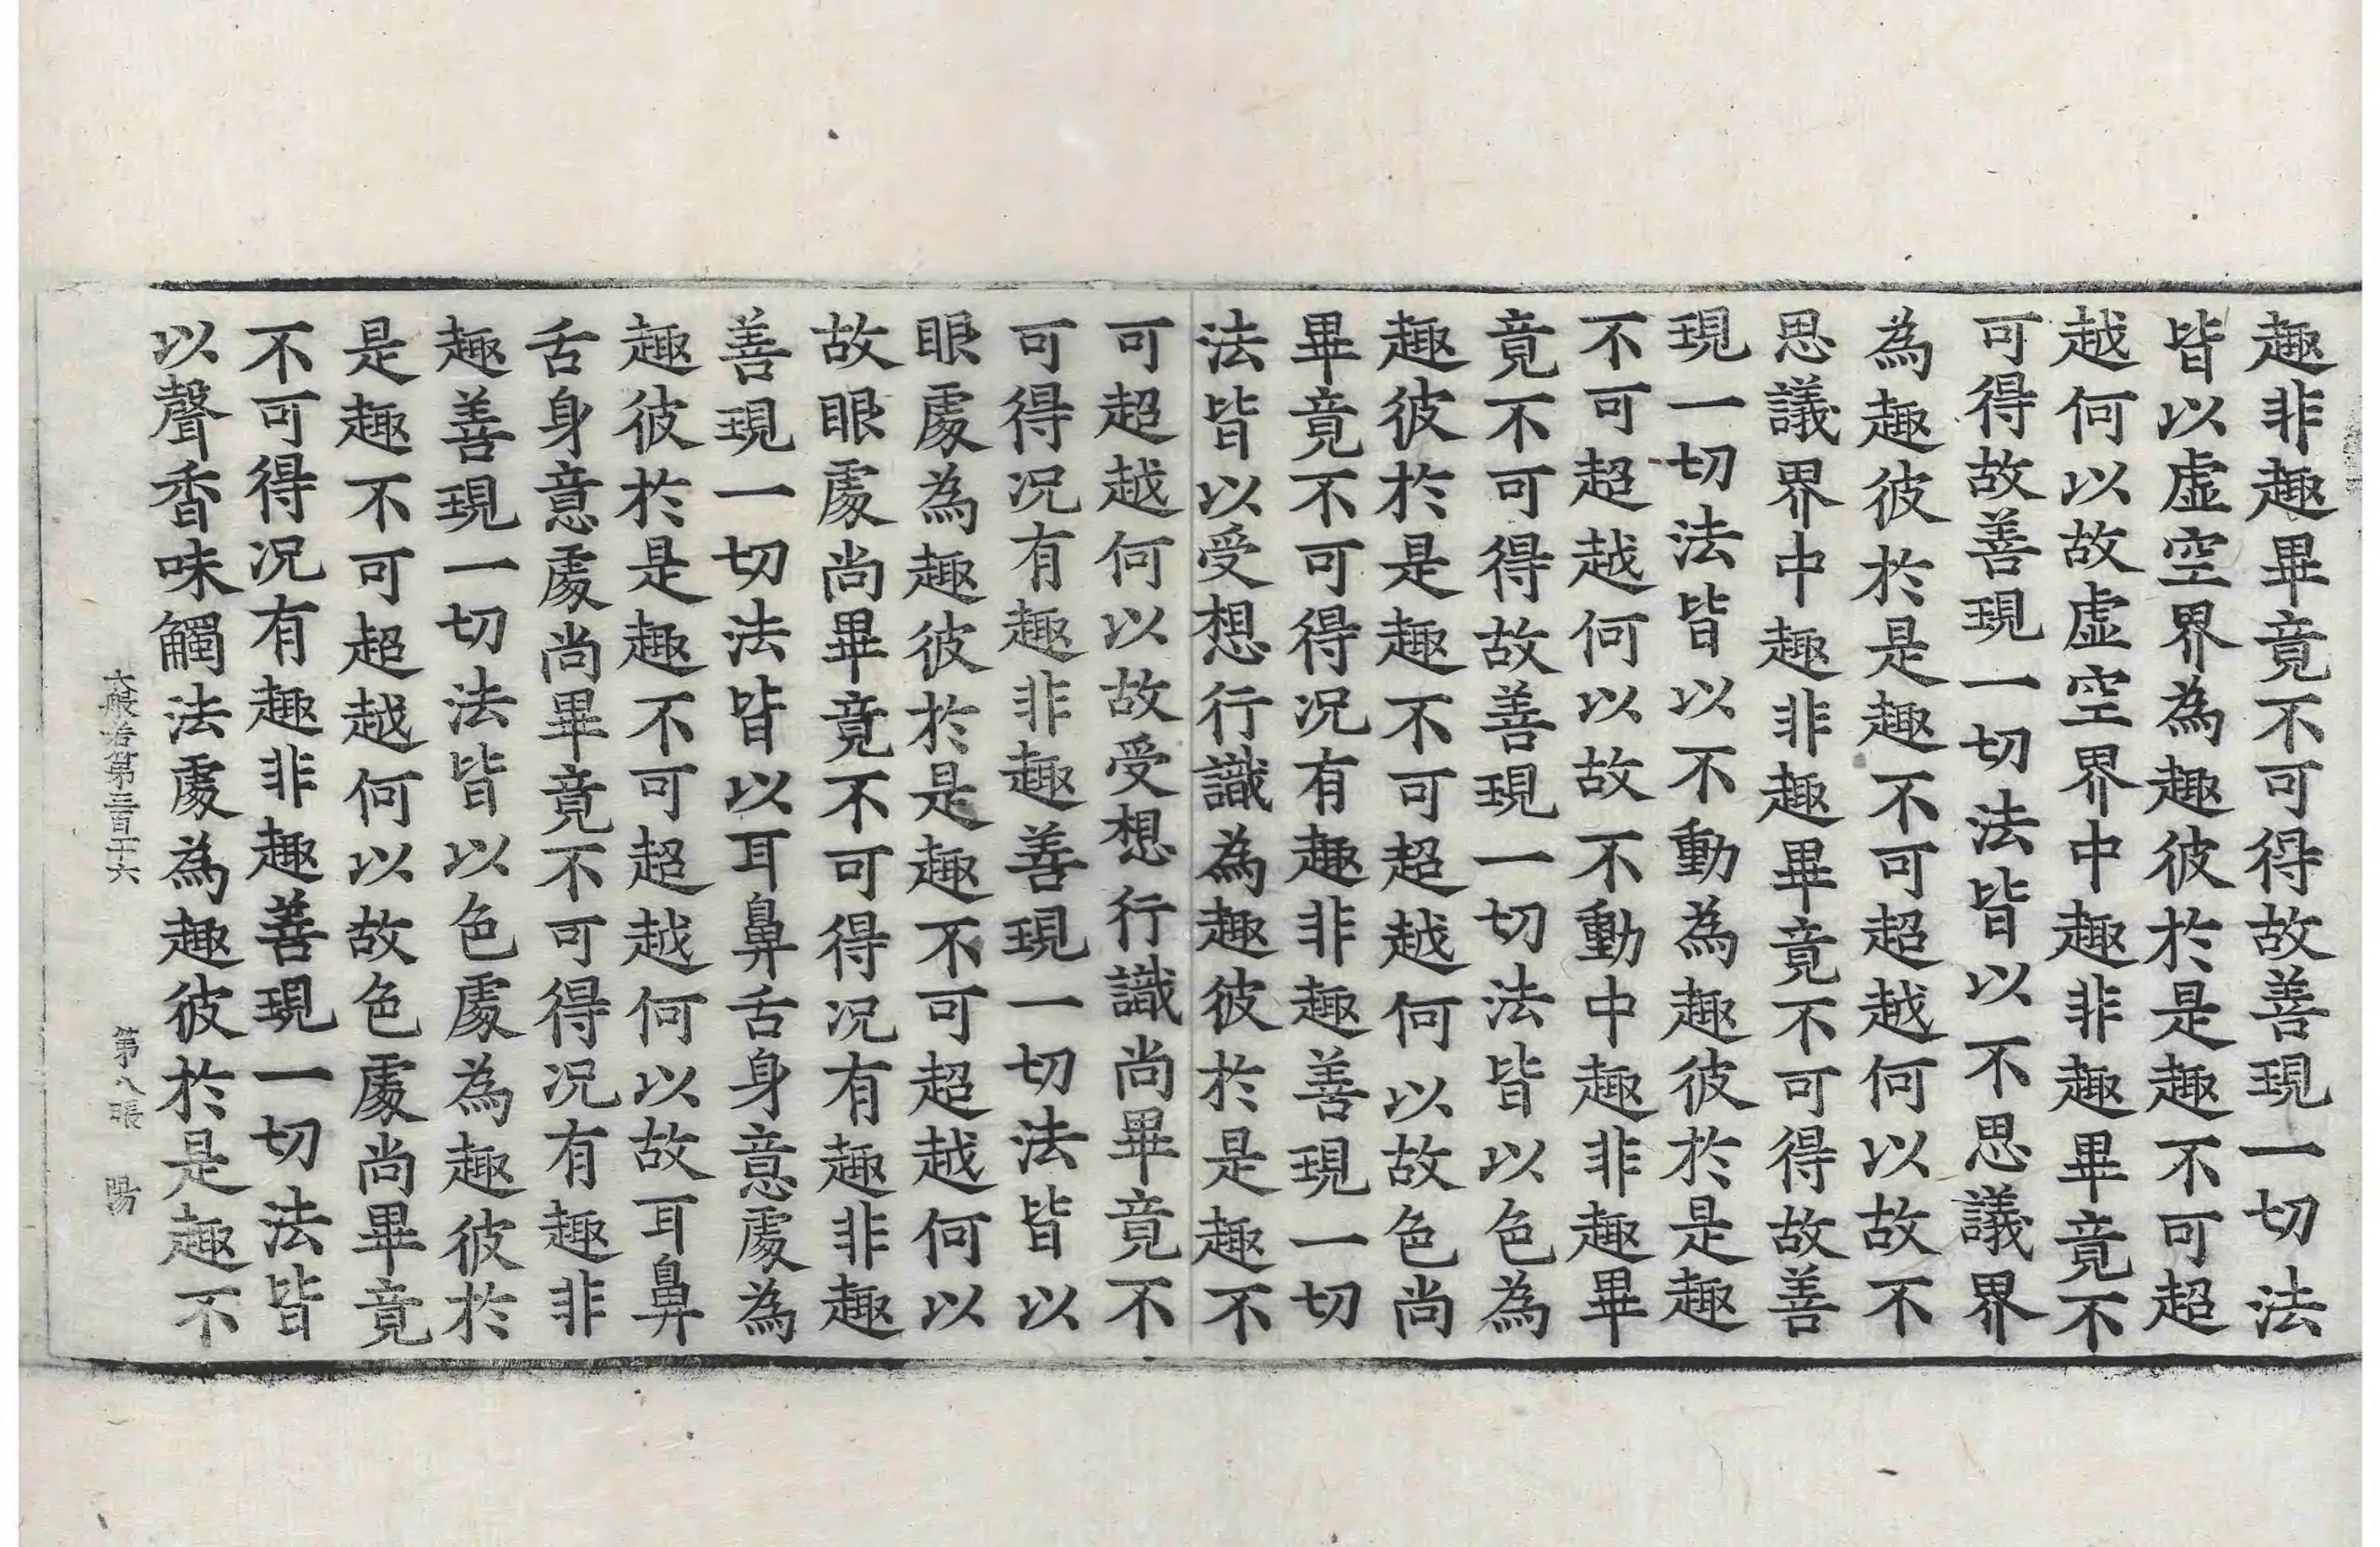 趣非趣畢竟不可得故善現一切法
皆以虛空界為趣彼於是趣不可超
越何以故虛空界中趣非趣畢竟不
可得故善現一切法皆以不思議界
為趣彼於是趣不可超越何以故不
思議界中趣非趣畢竟不可得故善
現一切法皆以不動為趣彼於是趣
不可超越何以故不動中趣非趣畢
竟不可得故善現一切法皆以色為
趣彼於是趣不可超越何以故色尚
畢竟不可得况有趣非趣善現一切
法皆以受想行識為趣彼於是趣不
可超越何以故受想行識尚畢竟不
可得况有趣非趣善現一切法皆以
眼處為趣彼於是趣不可超越何以
故眼處尚畢竟不可得况有趣非趣
善現一切法皆以耳鼻舌身意處為
趣彼於是趣不可超越何以故耳鼻
舌身意處尚畢竟不可得况有趣非
趣善現一切法皆以色處為趣彼於
是趣不可超越何以故色處尚畢竟
不可得况有趣非趣善現一切法皆
以聲香味觸法處為趣彼於是趣不
大般若第三百十六 第八張 陽